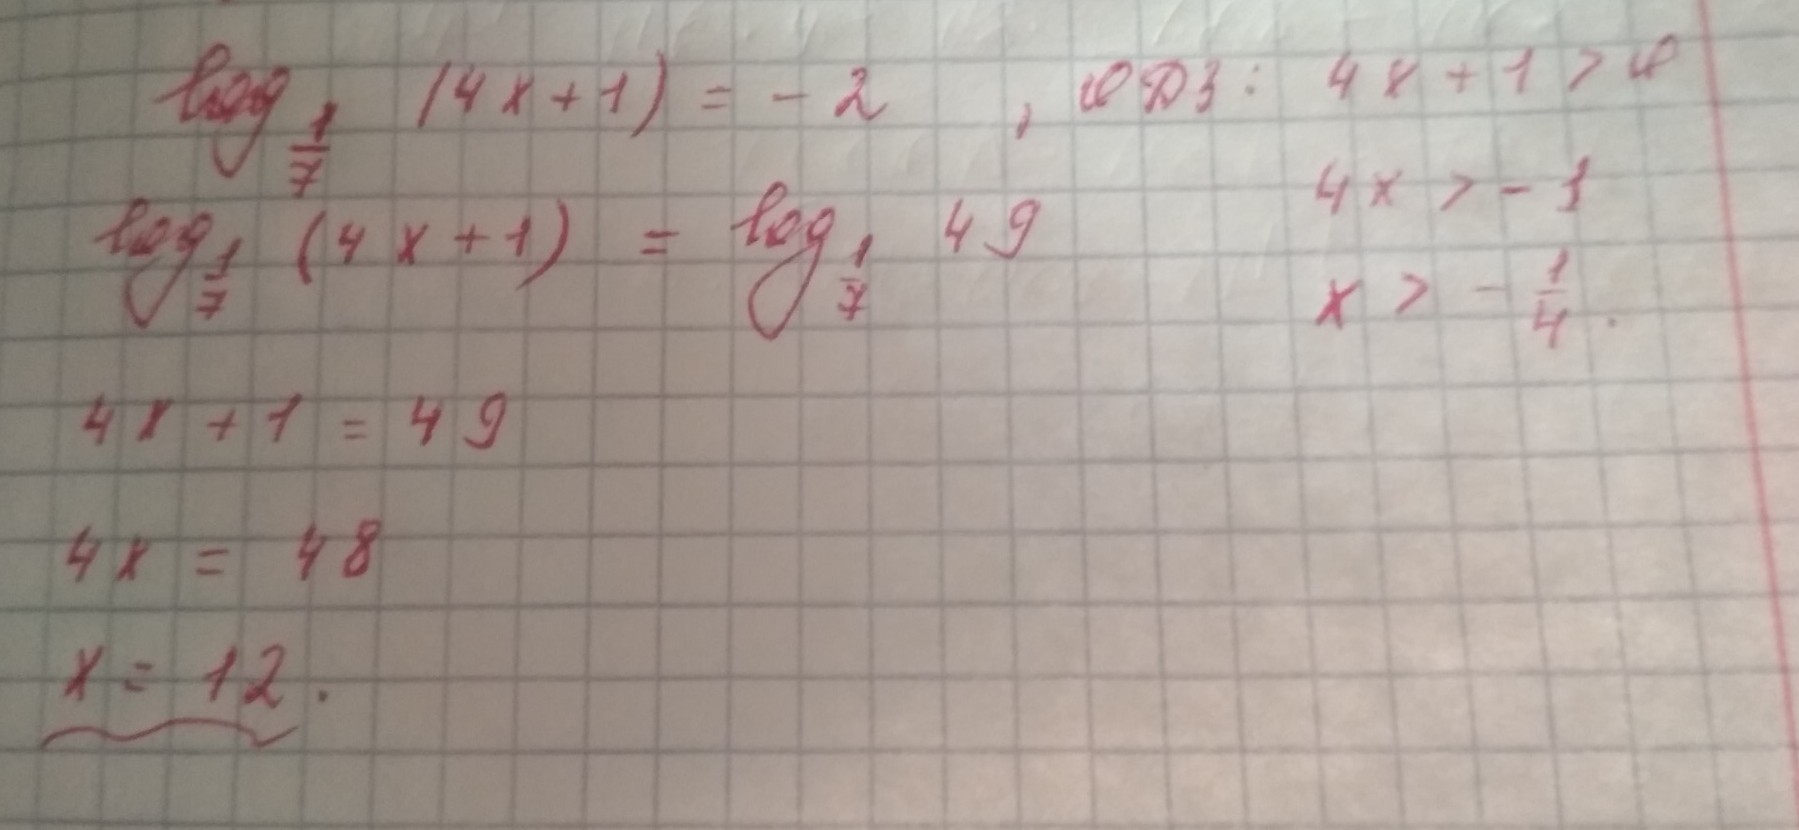 log_{1/7} (4x+1) = -2, ОДЗ: 4x+1>0
4x > -1
log_{1/7} (4x+1) = log_{1/7} 49
x > -1/4.
4x+1 = 49
4x = 48
x = 12.